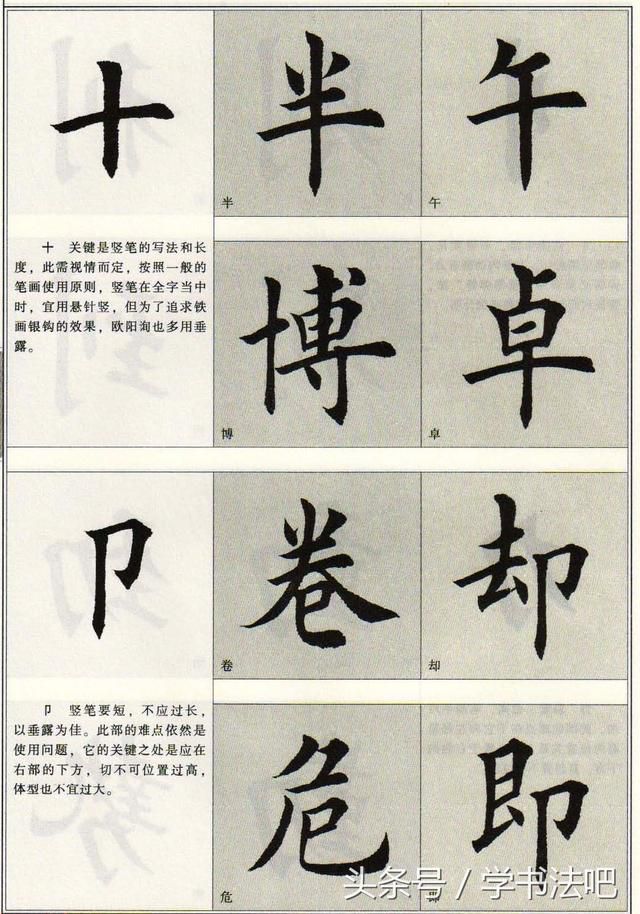 十
半
半
午
午
十 关键是竖笔的写法和长
度，此需视情而定，按照一般的
笔画使用原则，竖笔在全字当中
时，宜用悬针竖，但为了追求铁
画银钩的效果，欧阳询也多用垂
露。
博
博
卓
卓
卩
卷
卷
却
却
卩 竖笔要短，不应过长，
以垂露为佳。此部的难点依然是
使用问题，它的关键之处是应在
右部的下方，切不可位置过高，
体型也不宜过大。
危
危
即
即
头条号／学书法吧